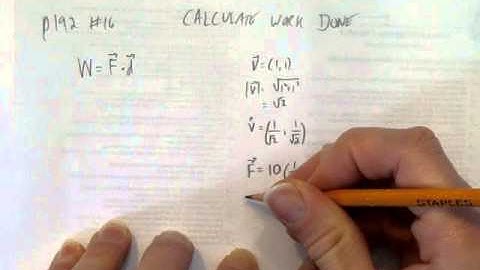 p192 #16
CALCULATE WORK DONE
W = F⃗ · d⃗
v⃗ = (1,1)
|v⃗| = √1²+1²
= √2
v̂ = (1/√2, 1/√2)
F⃗ = 10(1/
STAPLES